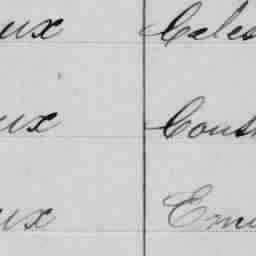 ux Cales
ux Cons
ux Emi